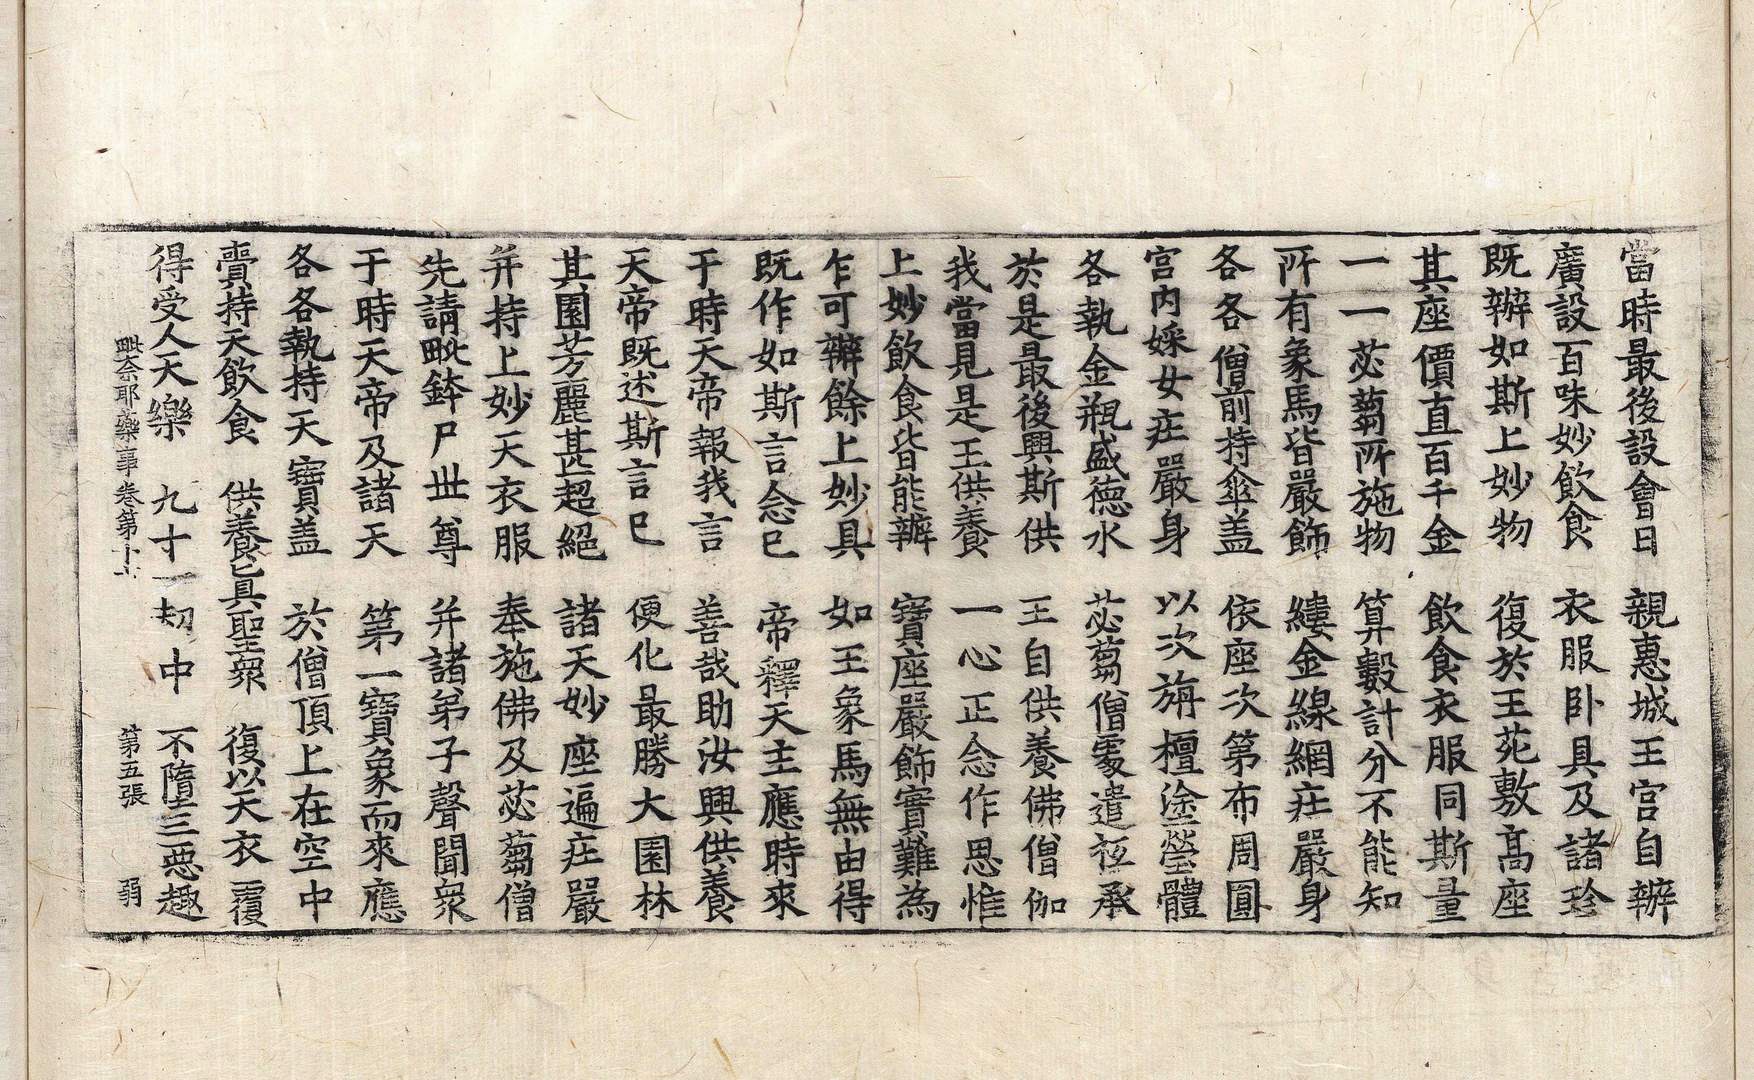 當時最後設會日　親惠城王宮自辦
廣設百味妙飲食　衣服卧具及諸珍
既辦如斯上妙物　復於王苑敷高座
其座價直百千金　飲食衣服同斯量
一一苾蒭所施物　算數計分不能知
所有象馬皆嚴飾　縷金線網庄嚴身
各各僧前持傘盖　依座次第布周圓
宮内婇女庄嚴身　以次旃檀塗瑩體
各執金瓶盛德水　苾蒭僧處遣祗承
於是最後興斯供　王自供養佛僧伽
我當見是王供養　一心正念作思惟
上妙飲食皆能辦　寶座嚴飾實難為
乍可辦餘上妙具　如王象馬無由得
既作如斯言念已　帝釋天主應時來
于時天帝報我言　善哉助汝興供養
天帝既述斯言已　便化最勝大園林
其園芳麗甚超絕　諸天妙座遍庄嚴
并持上妙天衣服　奉施佛及苾蒭僧
先請毗鉢尸世尊　并諸弟子聲聞衆
于時天帝及諸天　第一寶象而來應
各各執持天寶盖　於僧頂上在空中
賷持天飲食　供養苾具聖衆　復以天衣覆
得受人天樂　九十一切中　不墮三惡趣
毗奈耶藥事卷第十六　第五張　弱